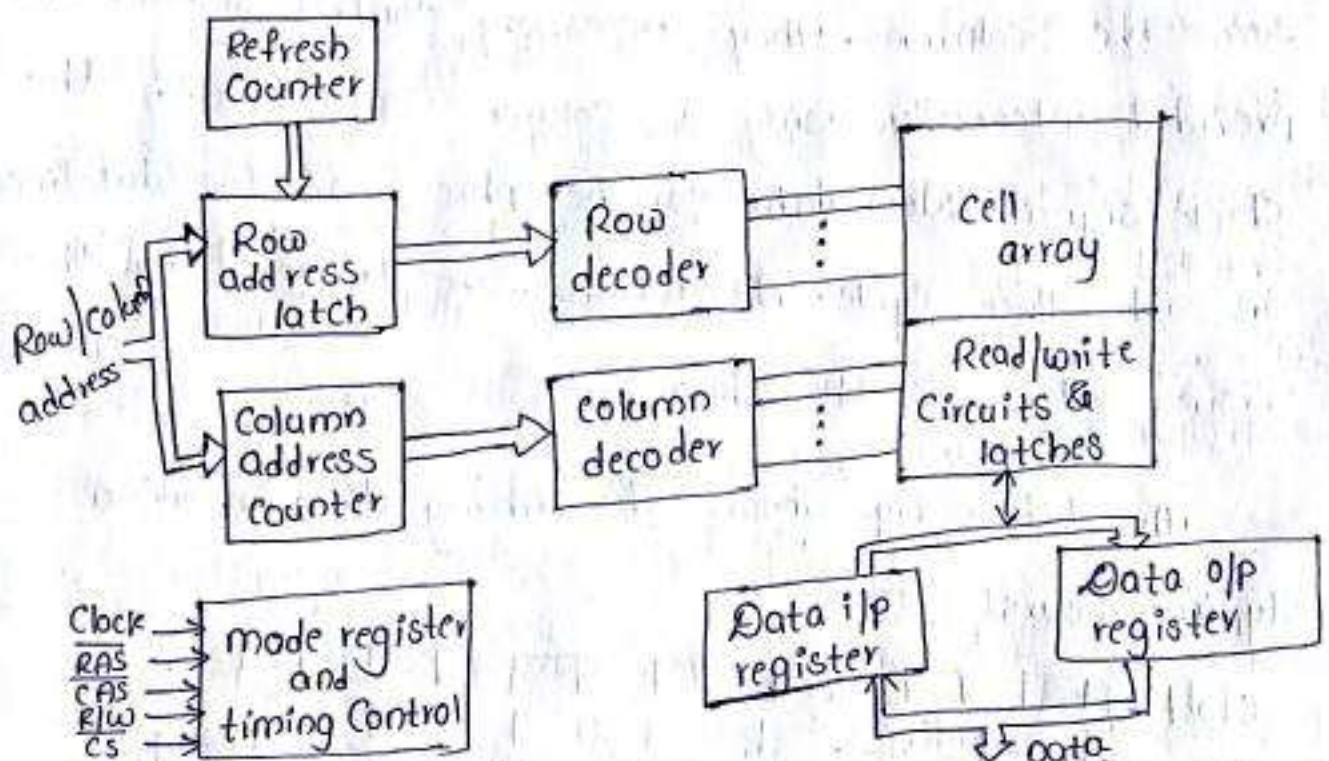 Refresh
Counter
Row
address
latch
Row
decoder
Cell
array
Row/Column
address
Read/write
Circuits &
latches
Column
address
Counter
column
decoder
Clock
R̅A̅S̅
C̅A̅S̅
R/W̅
C̅S̅
mode register
and
timing Control
Data i/p
register
Data o/p
register
Data